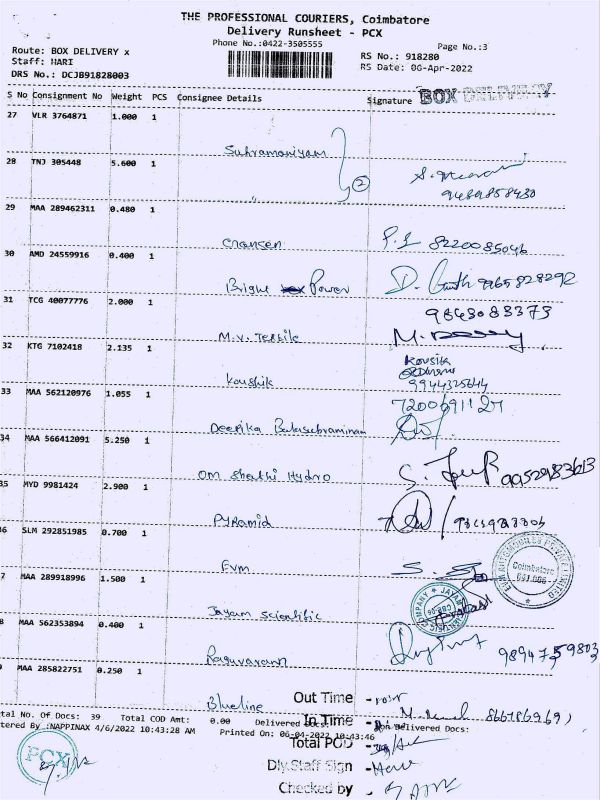 THE PROFESSIONAL COURIERS, Coimbatore
Delivery Runsheet - PCX
Phone No.:0422-3505555
Page No.:3
Route: BOX DELIVERY x
Staff: HARI
DRS No.: DCJB91828003
RS No.: 918280
RS Date: 06-Apr-2022
S No Consignment No Weight PCS Consignee Details Signature BOX DELIVERY
27 VLR 3764871 1.000 1
Subramaniyam
28 TNJ 305448 5.600 1
2
29 MAA 289462311 0.480 1
Cransen P.S 8220085046
30 AMD 24559916 0.400 1
Bright Power
31 TCG 40077776 2.000 1
9843083373
M.V. Textile
32 KTG 7102418 2.135 1
Kousik
9944325644
Koushik
33 MAA 562120976 1.055 1
7200691127
Deepika Balasubraminam
34 MAA 566412091 5.250 1
Om Shakthi Hydro
35 MYD 9981424 2.900 1
Pyramid
6 SLM 292851985 0.700 1
Evm
EVM AUTOMOBILES PRIVATE LIMITED
Coimbatore
641 006
7 MAA 289918996 1.500 1
Jayam Scientific
8 MAA 562353894 0.400 1
Raguvarann
9894759803
9 MAA 285822751 0.250 1
Blueline
Out Time -
tal No. Of Docs: 39 Total COD Amt: 0.00 Delivered Docs: Non Delivered Docs:
In Time -
tered By :NAPPINAX 4/6/2022 10:43:28 AM Printed On: 06-04-2022 10:43:46
Total POD -
PCX
Dly Staff Sign -
Checked by -